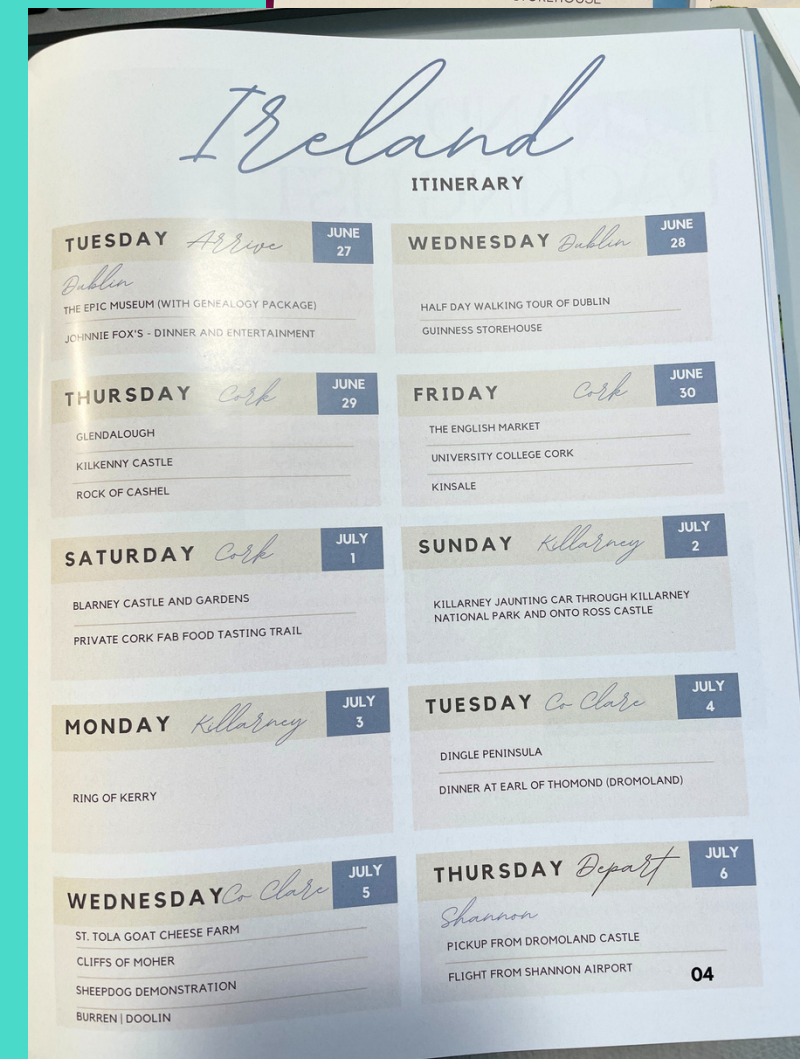 STOREHOUSE
Ireland
ITINERARY
TUESDAY Arrive
JUNE
27
Dublin
THE EPIC MUSEUM (WITH GENEALOGY PACKAGE)
JOHNNIE FOX'S - DINNER AND ENTERTAINMENT
WEDNESDAY Dublin
JUNE
28
HALF DAY WALKING TOUR OF DUBLIN
GUINNESS STOREHOUSE
THURSDAY Cork
JUNE
29
GLENDALOUGH
KILKENNY CASTLE
ROCK OF CASHEL
FRIDAY Cork
JUNE
30
THE ENGLISH MARKET
UNIVERSITY COLLEGE CORK
KINSALE
SATURDAY Cork
JULY
1
BLARNEY CASTLE AND GARDENS
PRIVATE CORK FAB FOOD TASTING TRAIL
SUNDAY Killarney
JULY
2
KILLARNEY JAUNTING CAR THROUGH KILLARNEY
NATIONAL PARK AND ONTO ROSS CASTLE
MONDAY Killarney
JULY
3
RING OF KERRY
TUESDAY Co Clare
JULY
4
DINGLE PENINSULA
DINNER AT EARL OF THOMOND (DROMOLAND)
WEDNESDAY Co Clare
JULY
5
ST. TOLA GOAT CHEESE FARM
CLIFFS OF MOHER
SHEEPDOG DEMONSTRATION
BURREN | DOOLIN
THURSDAY Depart
JULY
6
Shannon
PICKUP FROM DROMOLAND CASTLE
FLIGHT FROM SHANNON AIRPORT
04